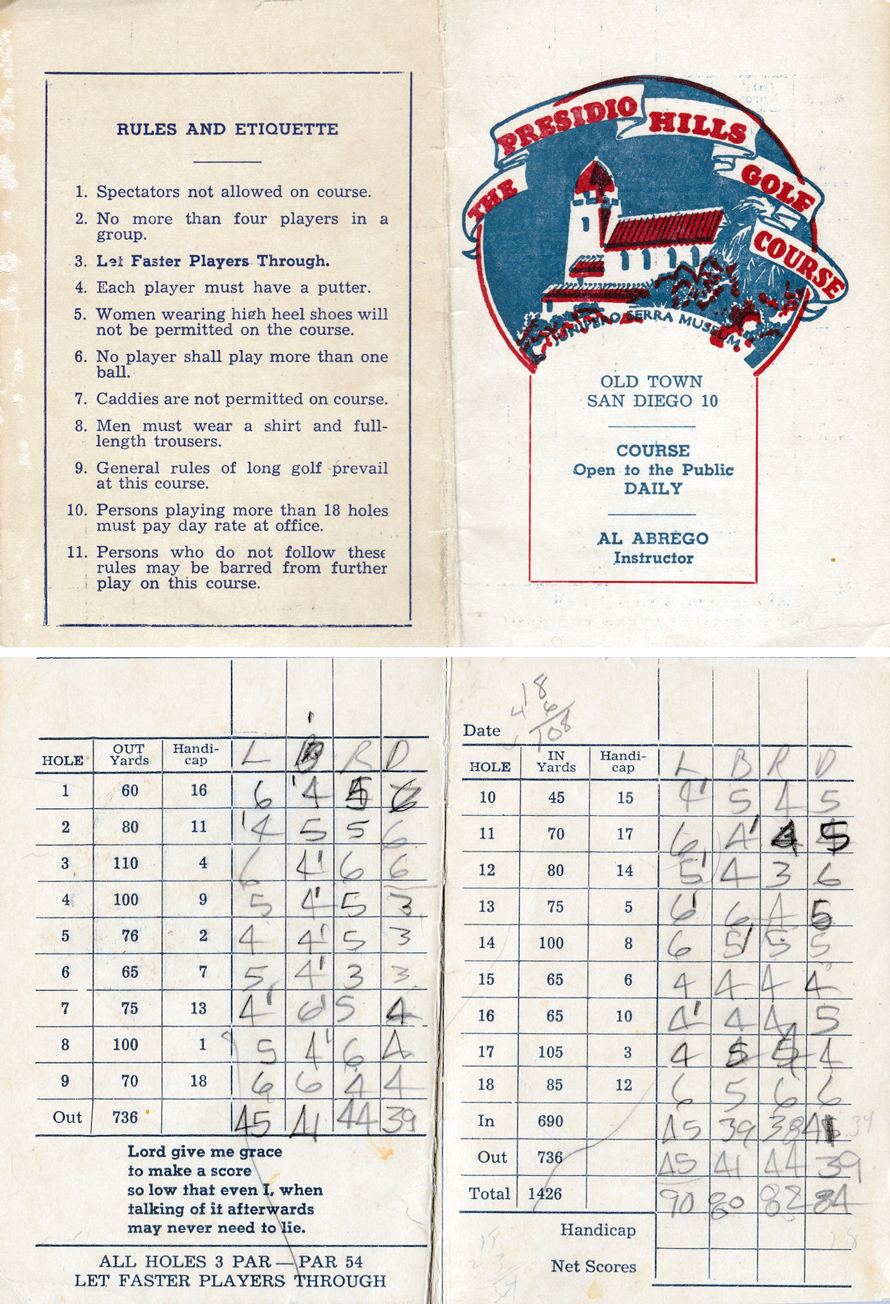 RULES AND ETIQUETTE
1. Spectators not allowed on course.
2. No more than four players in a
group.
3. Let Faster Players Through.
4. Each player must have a putter.
5. Women wearing high heel shoes will
not be permitted on the course.
6. No player shall play more than one
ball.
7. Caddies are not permitted on course.
8. Men must wear a shirt and full-
length trousers.
9. General rules of long golf prevail
at this course.
10. Persons playing more than 18 holes
must pay day rate at office.
11. Persons who do not follow these
rules may be barred from further
play on this course.
THE PRESIDIO HILLS GOLF COURSE
JUNIPERO SERRA MUSEUM
OLD TOWN
SAN DIEGO 10
COURSE
Open to the Public
DAILY
AL ABREGO
Instructor
HOLE OUT Yards Handi-cap L B R D
1 60 16 6 4 5 6
2 80 11 4 5 5 6
3 110 4 6 4 6 6
4 100 9 5 4 5 3
5 76 2 4 4 5 3
6 65 7 5 4 3 3
7 75 13 4 6 5 4
8 100 1 5 4 6 4
9 70 18 6 6 4 4
Out 736 45 41 44 39
Lord give me grace
to make a score
so low that even I, when
talking of it afterwards
may never need to lie.
ALL HOLES 3 PAR — PAR 54
LET FASTER PLAYERS THROUGH
18
6
108
Date
HOLE IN Yards Handi-cap L B R D
10 45 15 4 5 4 5
11 70 17 6 4 5
12 80 14 5 4 3 6
13 75 5 6 6 4 5
14 100 8 6 5 5 5
15 65 6 4 4 4 4
16 65 10 4 4 4 5
17 105 3 4 5 5 4
18 85 12 6 5 6 6
In 690 45 39 38
Out 736 45 41 44 39
Total 1426 90 80 82 84
Handicap
Net Scores